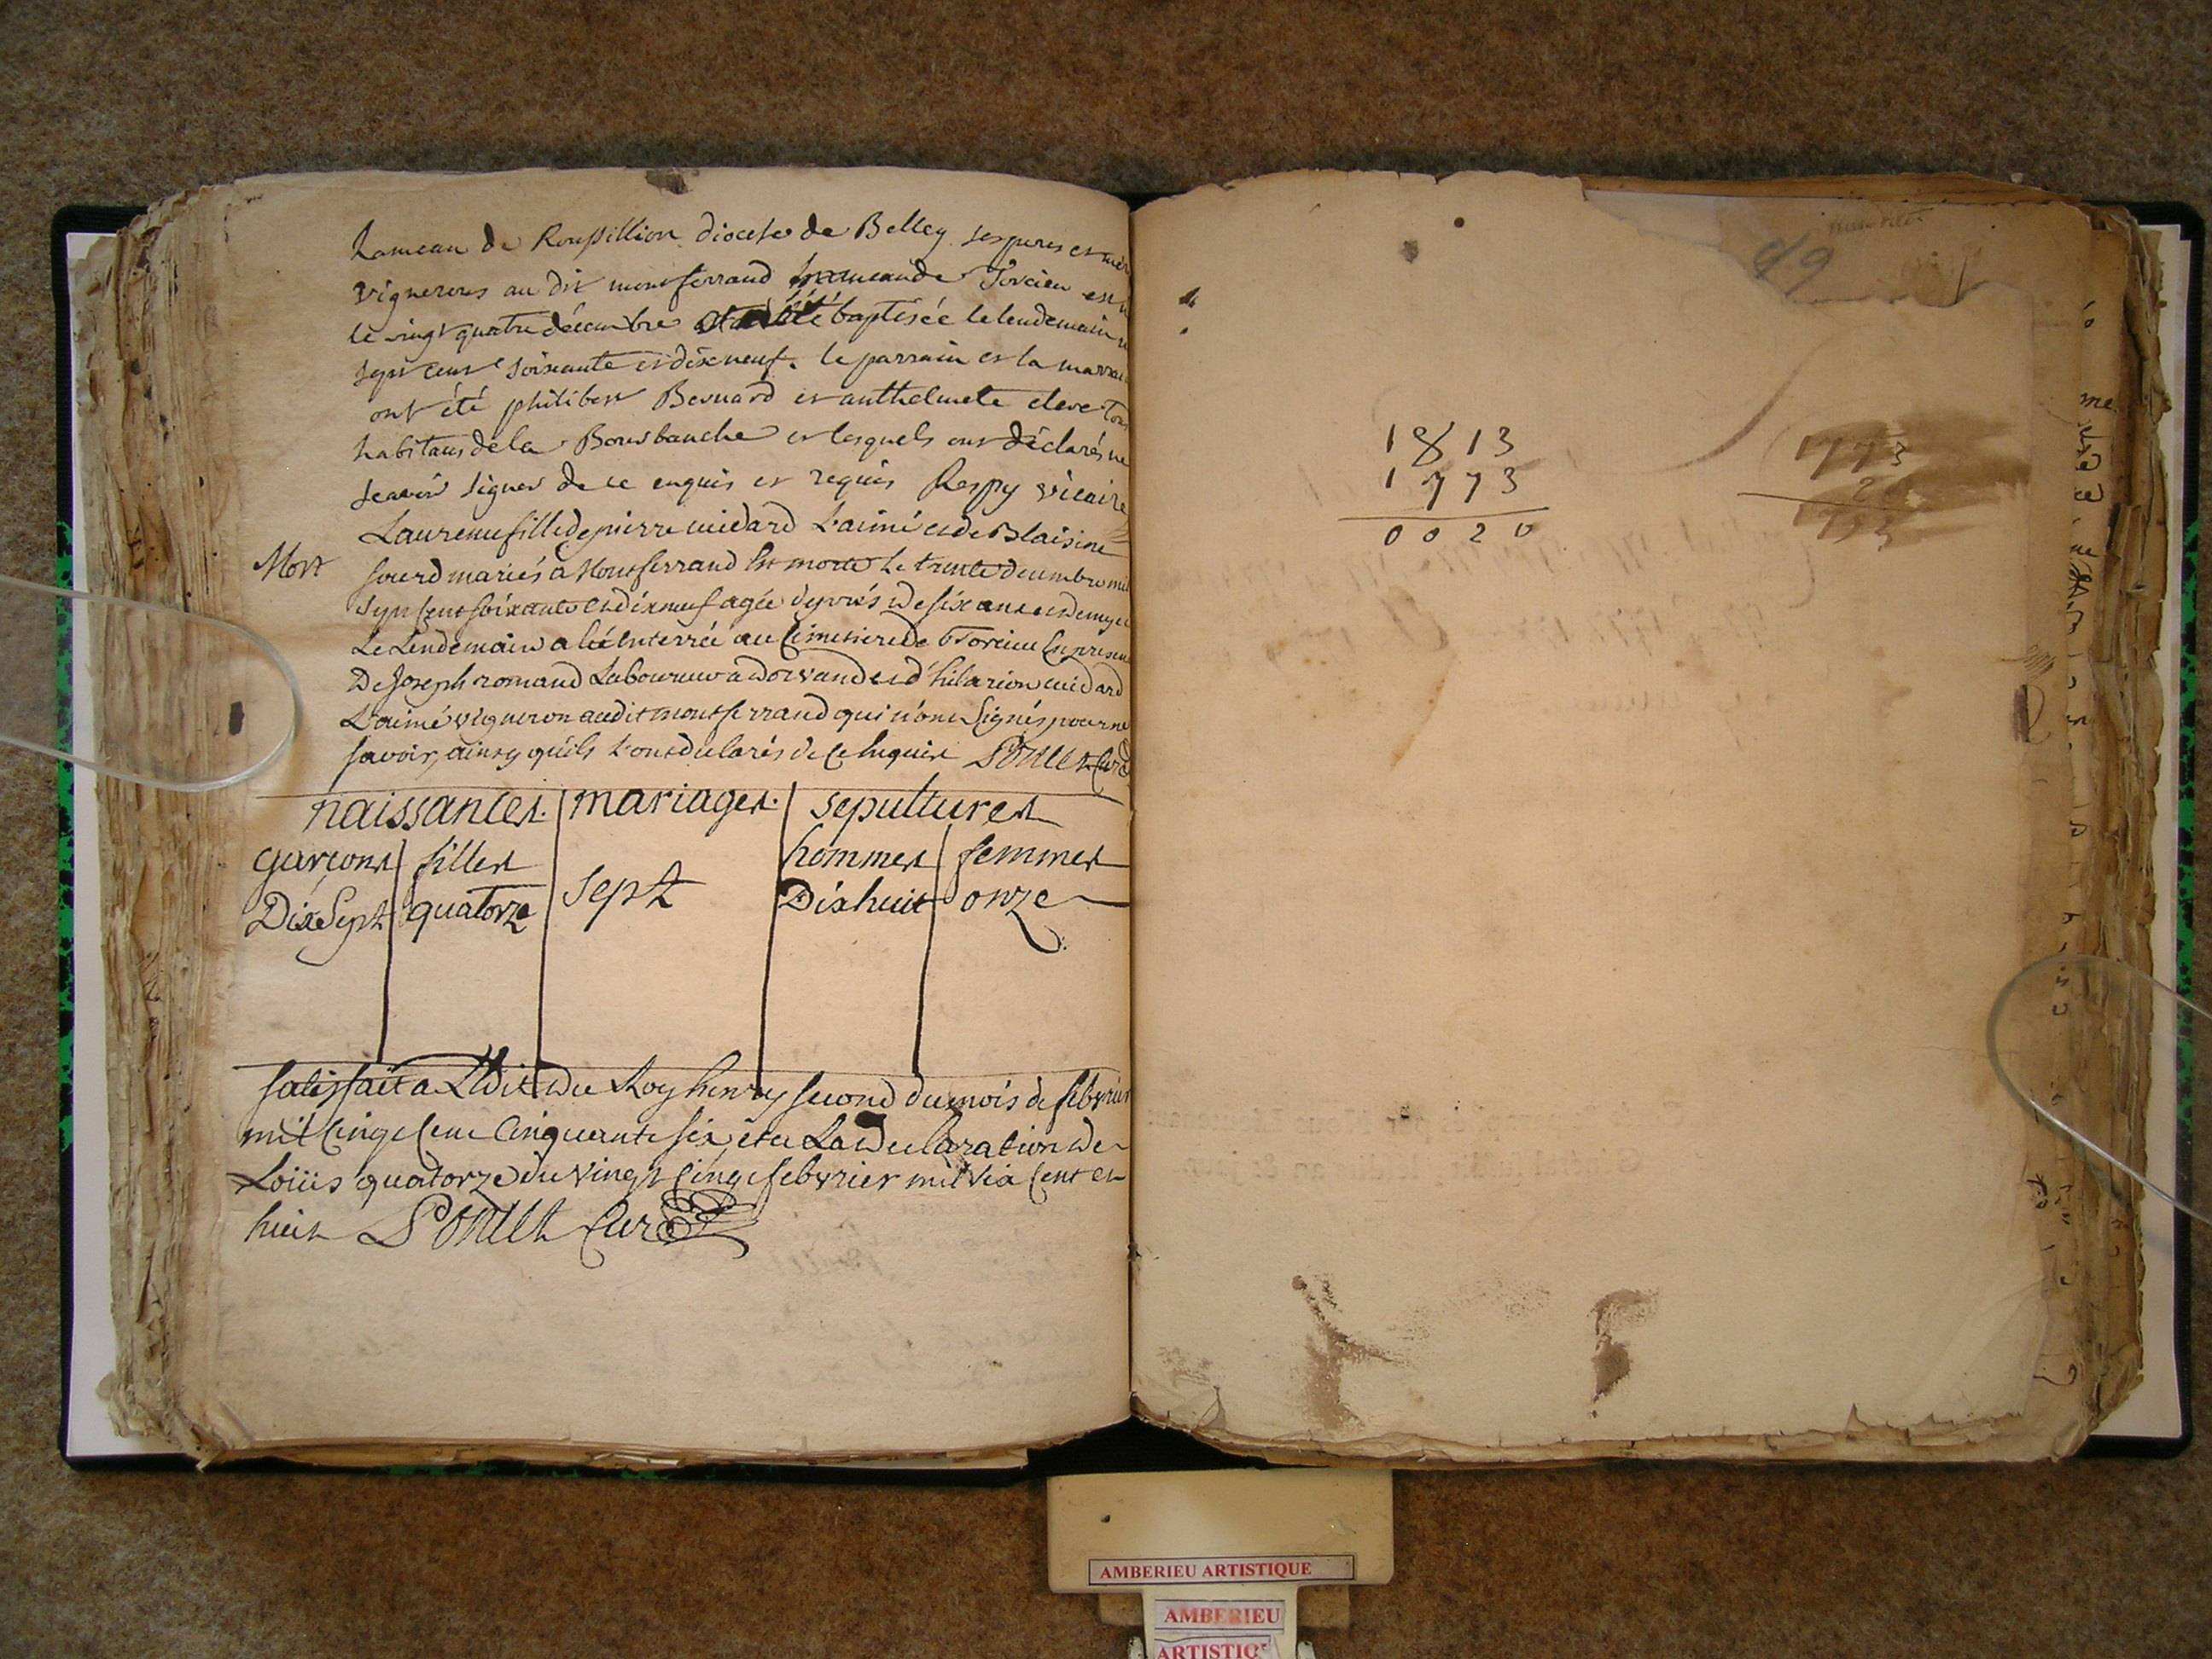 hameau de Roussillion diocese de Belley ses peres et
vignerons au dit montferrand hameau de Torcieu est
le vingt quatre décembre et a été baptisée le lendemain
sept cent soixante et dix neuf. le parrain et la marrai
ont été philibert Bernard et anthelmete
habitans de la Bourbanche et lesquels ont déclarés ne
scavoir signer de ce enquis et requis Respy vicaire
Laurence fille de pierre midard L'ainé et de Blaisine
Mort
sourd mariés a Montferrand Est morte Le trente decembre mil
Sept Cent soixante et dix neuf agée d'eprés de six ans et demy et
Le Lendemain a été Enterrée au Cimetiere de torcieu En presen
De Joseph romand Laboureur a dorvand et d'hilarion midard
L'ainé vigneron audit montferrand qui n'ont Signés pour ne
savoir, ainsy qu'ils L'ont declarés de Ce Enquis Poncet Curé
naissances. mariages. sepultures
garçons filles hommes femmes
Dix Sept quatorze Sept Dix huit onze
satisfait a L'Edit du Roy henry second du mois de febvrier
mil Cinq Cent Cinquante six et a La Declaration de
Loüis quatorze du vingt Cinq febvrier mil six Cent et
huit Poncet Curé
49
1813
1773
0020
1773
20
1793
AMBERIEU ARTISTIQUE
AMBERIEU